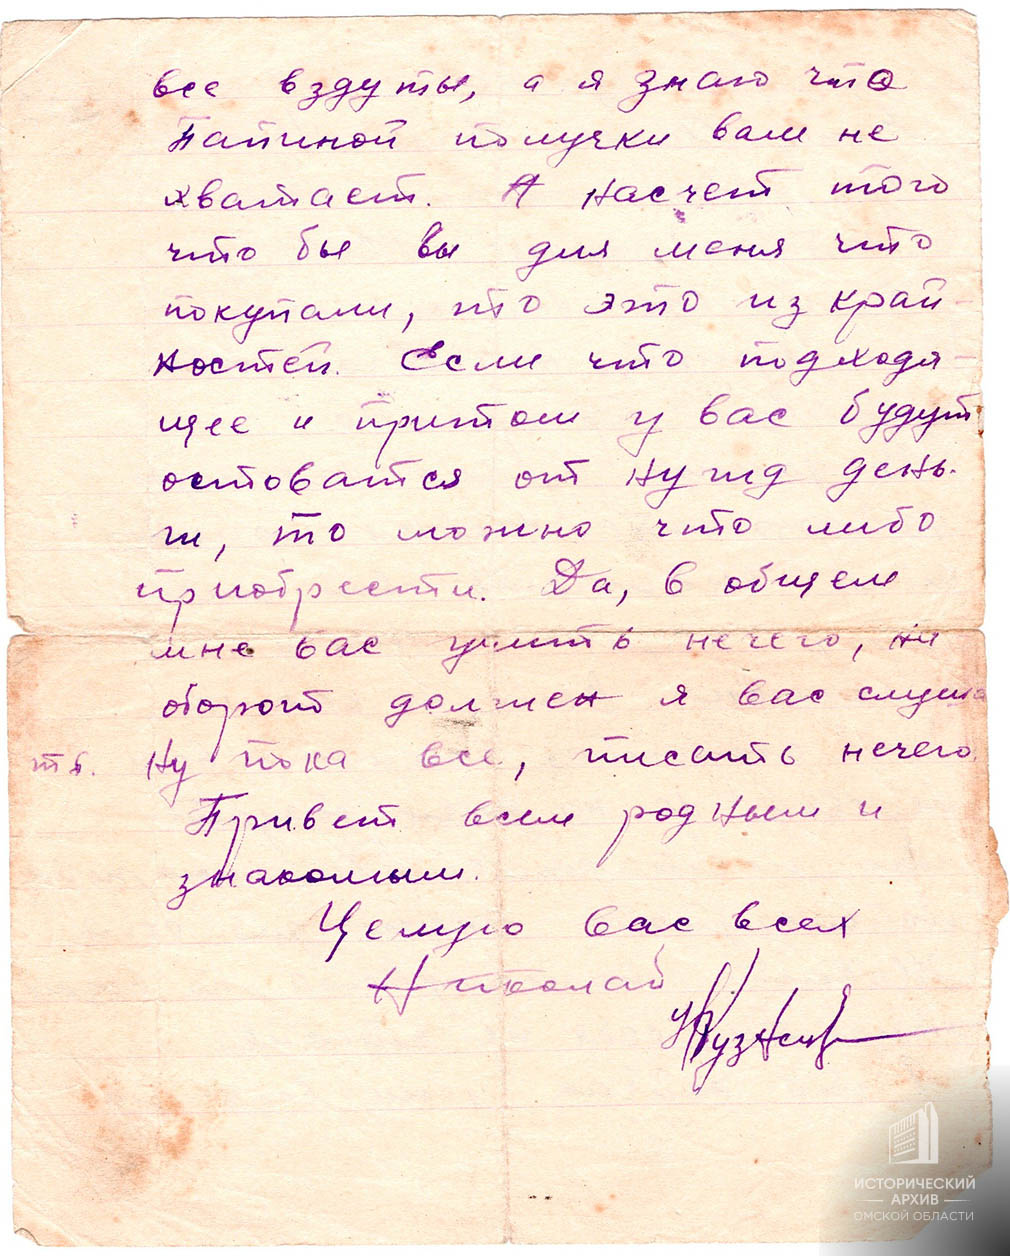 все вздуты, а я знаю что
Папиной получки вам не
хватает. А насчет того
что бы вы для меня что
покупали, то это из край-
ностей. Если что подходя-
щее и притом у вас будут
оставатся от нужд день-
ги, то можно что либо
приобрести. Да, в общем
мне вас учить нечего, на
оборот должен я вас слуша
ть. Ну пока все, писать нечего.
Привет всем родным и
знакомым.
Целую вас всех
Николай
НКузнецов
ИСТОРИЧЕСКИЙ
АРХИВ
ОМСКОЙ ОБЛАСТИ